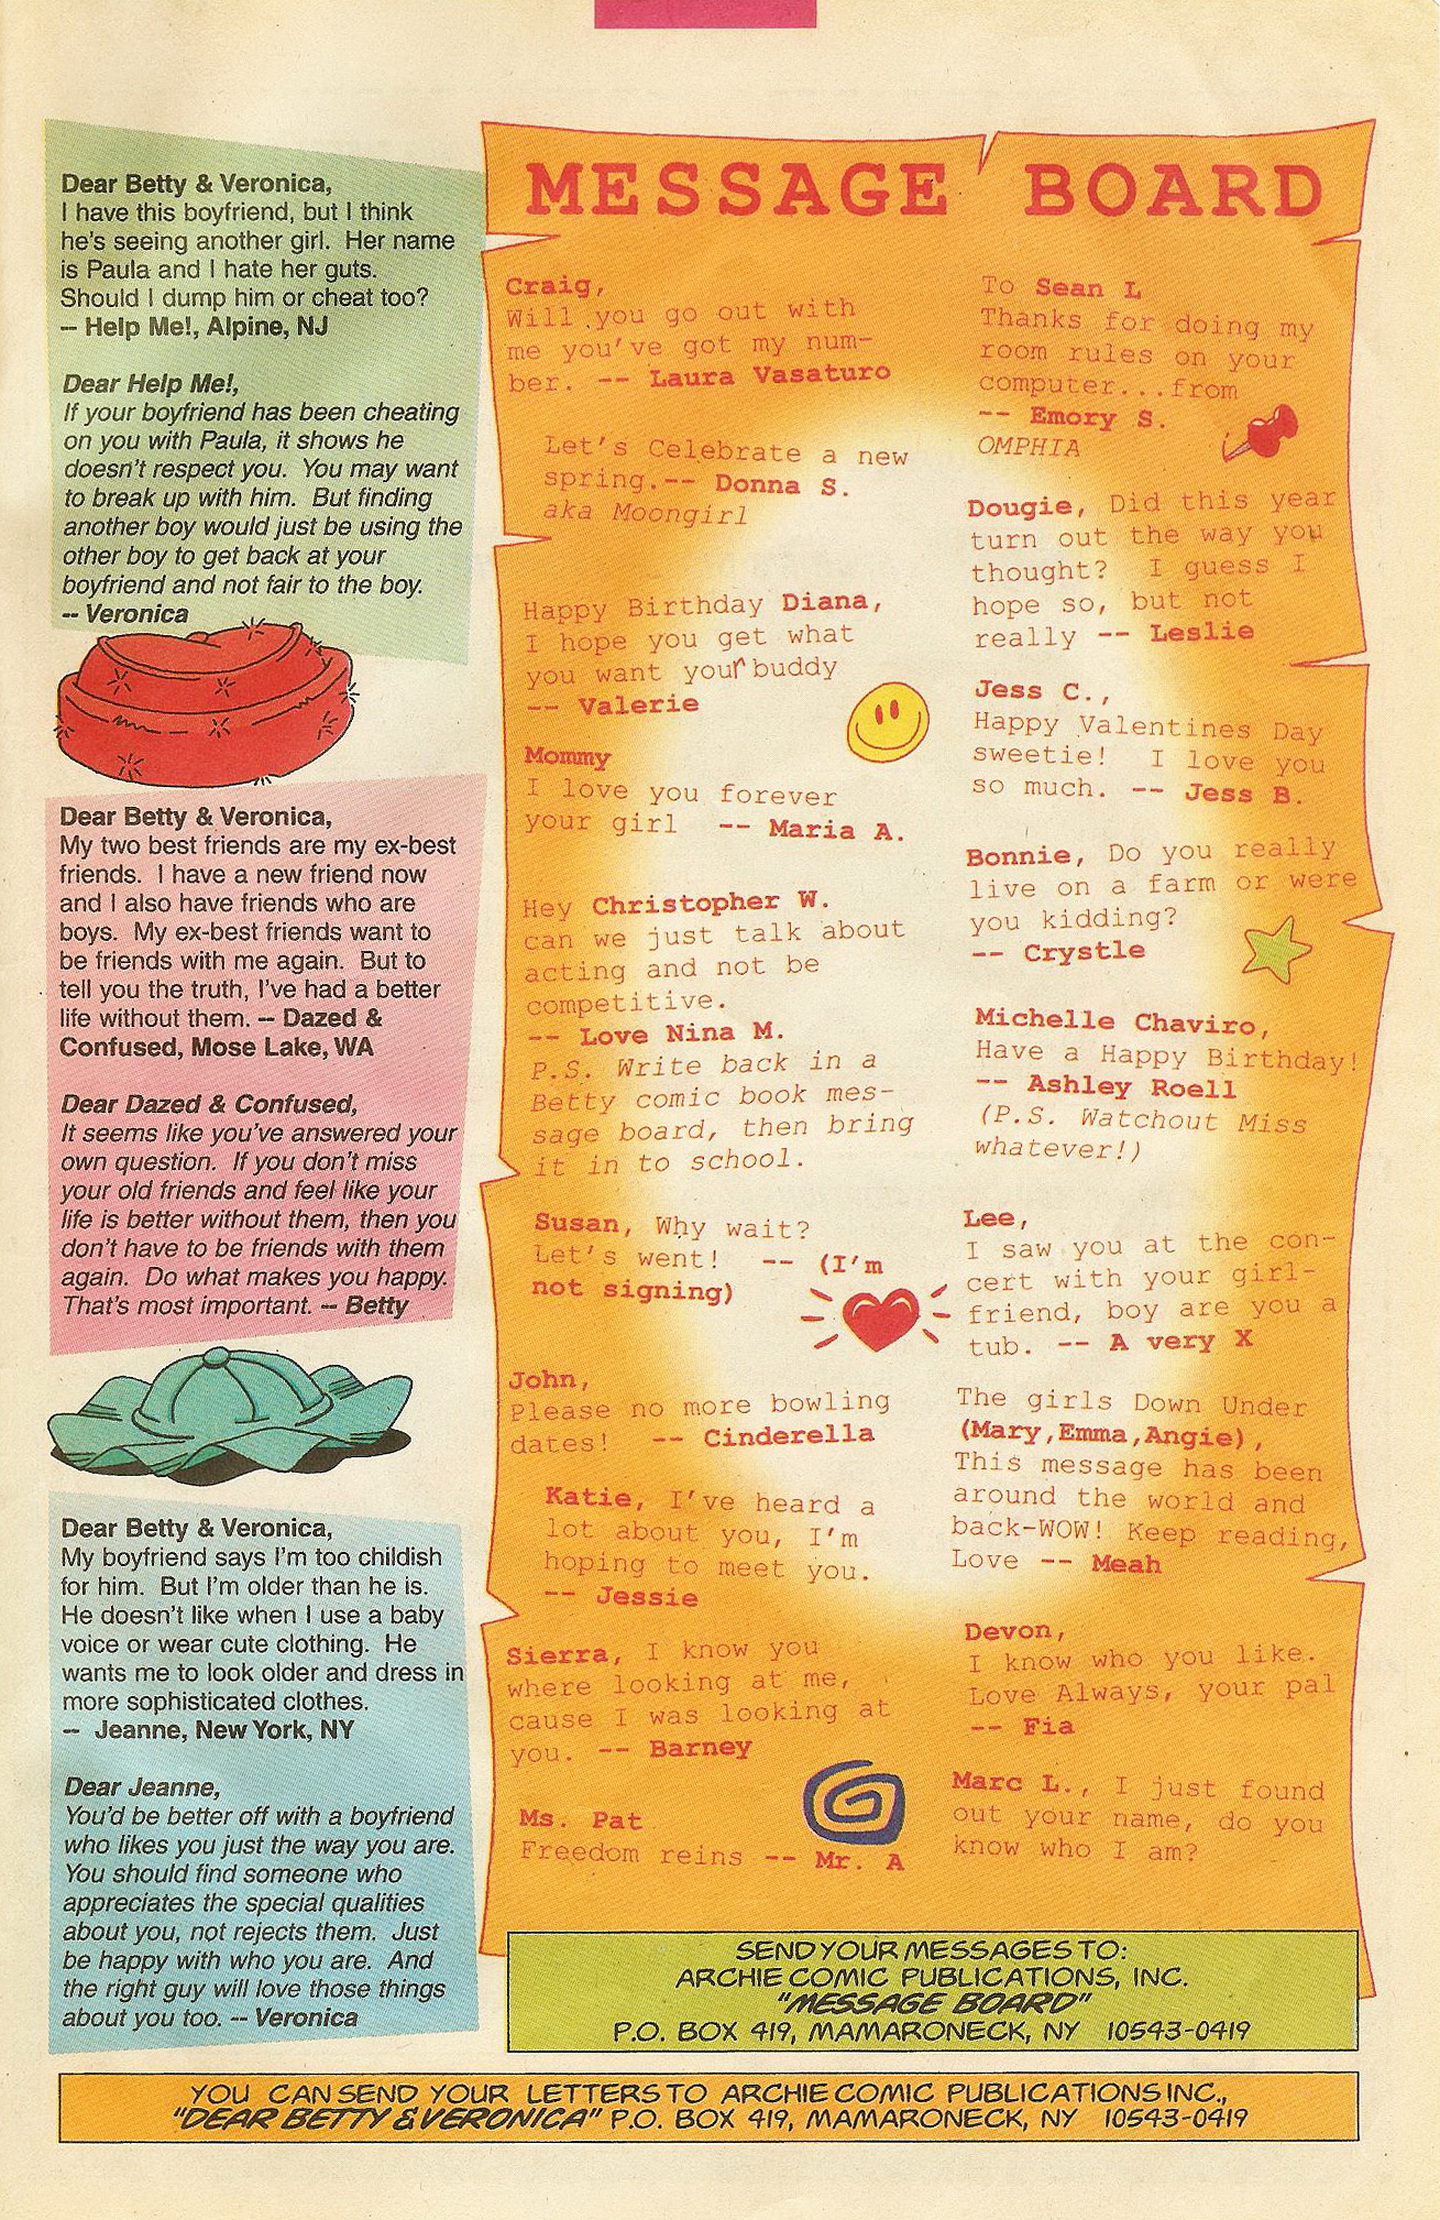 Dear Betty & Veronica,
I have this boyfriend, but I think
he's seeing another girl. Her name
is Paula and I hate her guts.
Should I dump him or cheat too?
-- Help Me!, Alpine, NJ
Dear Help Me!,
If your boyfriend has been cheating
on you with Paula, it shows he
doesn't respect you. You may want
to break up with him. But finding
another boy would just be using the
other boy to get back at your
boyfriend and not fair to the boy.
-- Veronica
Dear Betty & Veronica,
My two best friends are my ex-best
friends. I have a new friend now
and I also have friends who are
boys. My ex-best friends want to
be friends with me again. But to
tell you the truth, I've had a better
life without them. -- Dazed &
Confused, Mose Lake, WA
Dear Dazed & Confused,
It seems like you've answered your
own question. If you don't miss
your old friends and feel like your
life is better without them, then you
don't have to be friends with them
again. Do what makes you happy.
That's most important. -- Betty
Dear Betty & Veronica,
My boyfriend says I'm too childish
for him. But I'm older than he is.
He doesn't like when I use a baby
voice or wear cute clothing. He
wants me to look older and dress in
more sophisticated clothes.
-- Jeanne, New York, NY
Dear Jeanne,
You'd be better off with a boyfriend
who likes you just the way you are.
You should find someone who
appreciates the special qualities
about you, not rejects them. Just
be happy with who you are. And
the right guy will love those things
about you too. -- Veronica
MESSAGE BOARD
Craig,
Will you go out with
me you've got my num-
ber. -- Laura Vasaturo
Let's Celebrate a new
spring.-- Donna S.
aka Moongirl
Happy Birthday Diana,
I hope you get what
you want your buddy
-- Valerie
Mommy
I love you forever
your girl -- Maria A.
Hey Christopher W.
can we just talk about
acting and not be
competitive.
-- Love Nina M.
P.S. Write back in a
Betty comic book mes-
sage board, then bring
it in to school.
Susan, Why wait?
Let's went! -- (I'm
not signing)
John,
Please no more bowling
dates! -- Cinderella
Katie, I've heard a
lot about you, I'm
hoping to meet you.
-- Jessie
Sierra, I know you
where looking at me,
cause I was looking at
you. -- Barney
Ms. Pat
Freedom reins -- Mr. A
To Sean L
Thanks for doing my
room rules on your
computer...from
-- Emory S.
OMPHIA
Dougie, Did this year
turn out the way you
thought? I guess I
hope so, but not
really -- Leslie
Jess C.,
Happy Valentines Day
sweetie! I love you
so much. -- Jess B.
Bonnie, Do you really
live on a farm or were
you kidding?
-- Crystle
Michelle Chaviro,
Have a Happy Birthday!
-- Ashley Roell
(P.S. Watchout Miss
whatever!)
Lee,
I saw you at the con-
cert with your girl-
friend, boy are you a
tub. -- A very X
The girls Down Under
(Mary,Emma,Angie),
This message has been
around the world and
back-WOW! Keep reading,
Love -- Meah
Devon,
I know who you like.
Love Always, your pal
-- Fia
Marc L., I just found
out your name, do you
know who I am?
SEND YOUR MESSAGES TO:
ARCHIE COMIC PUBLICATIONS, INC.
"MESSAGE BOARD"
P.O. BOX 419, MAMARONECK, NY 10543-0419
YOU CAN SEND YOUR LETTERS TO ARCHIE COMIC PUBLICATIONS INC.,
"DEAR BETTY & VERONICA" P.O. BOX 419, MAMARONECK, NY 10543-0419